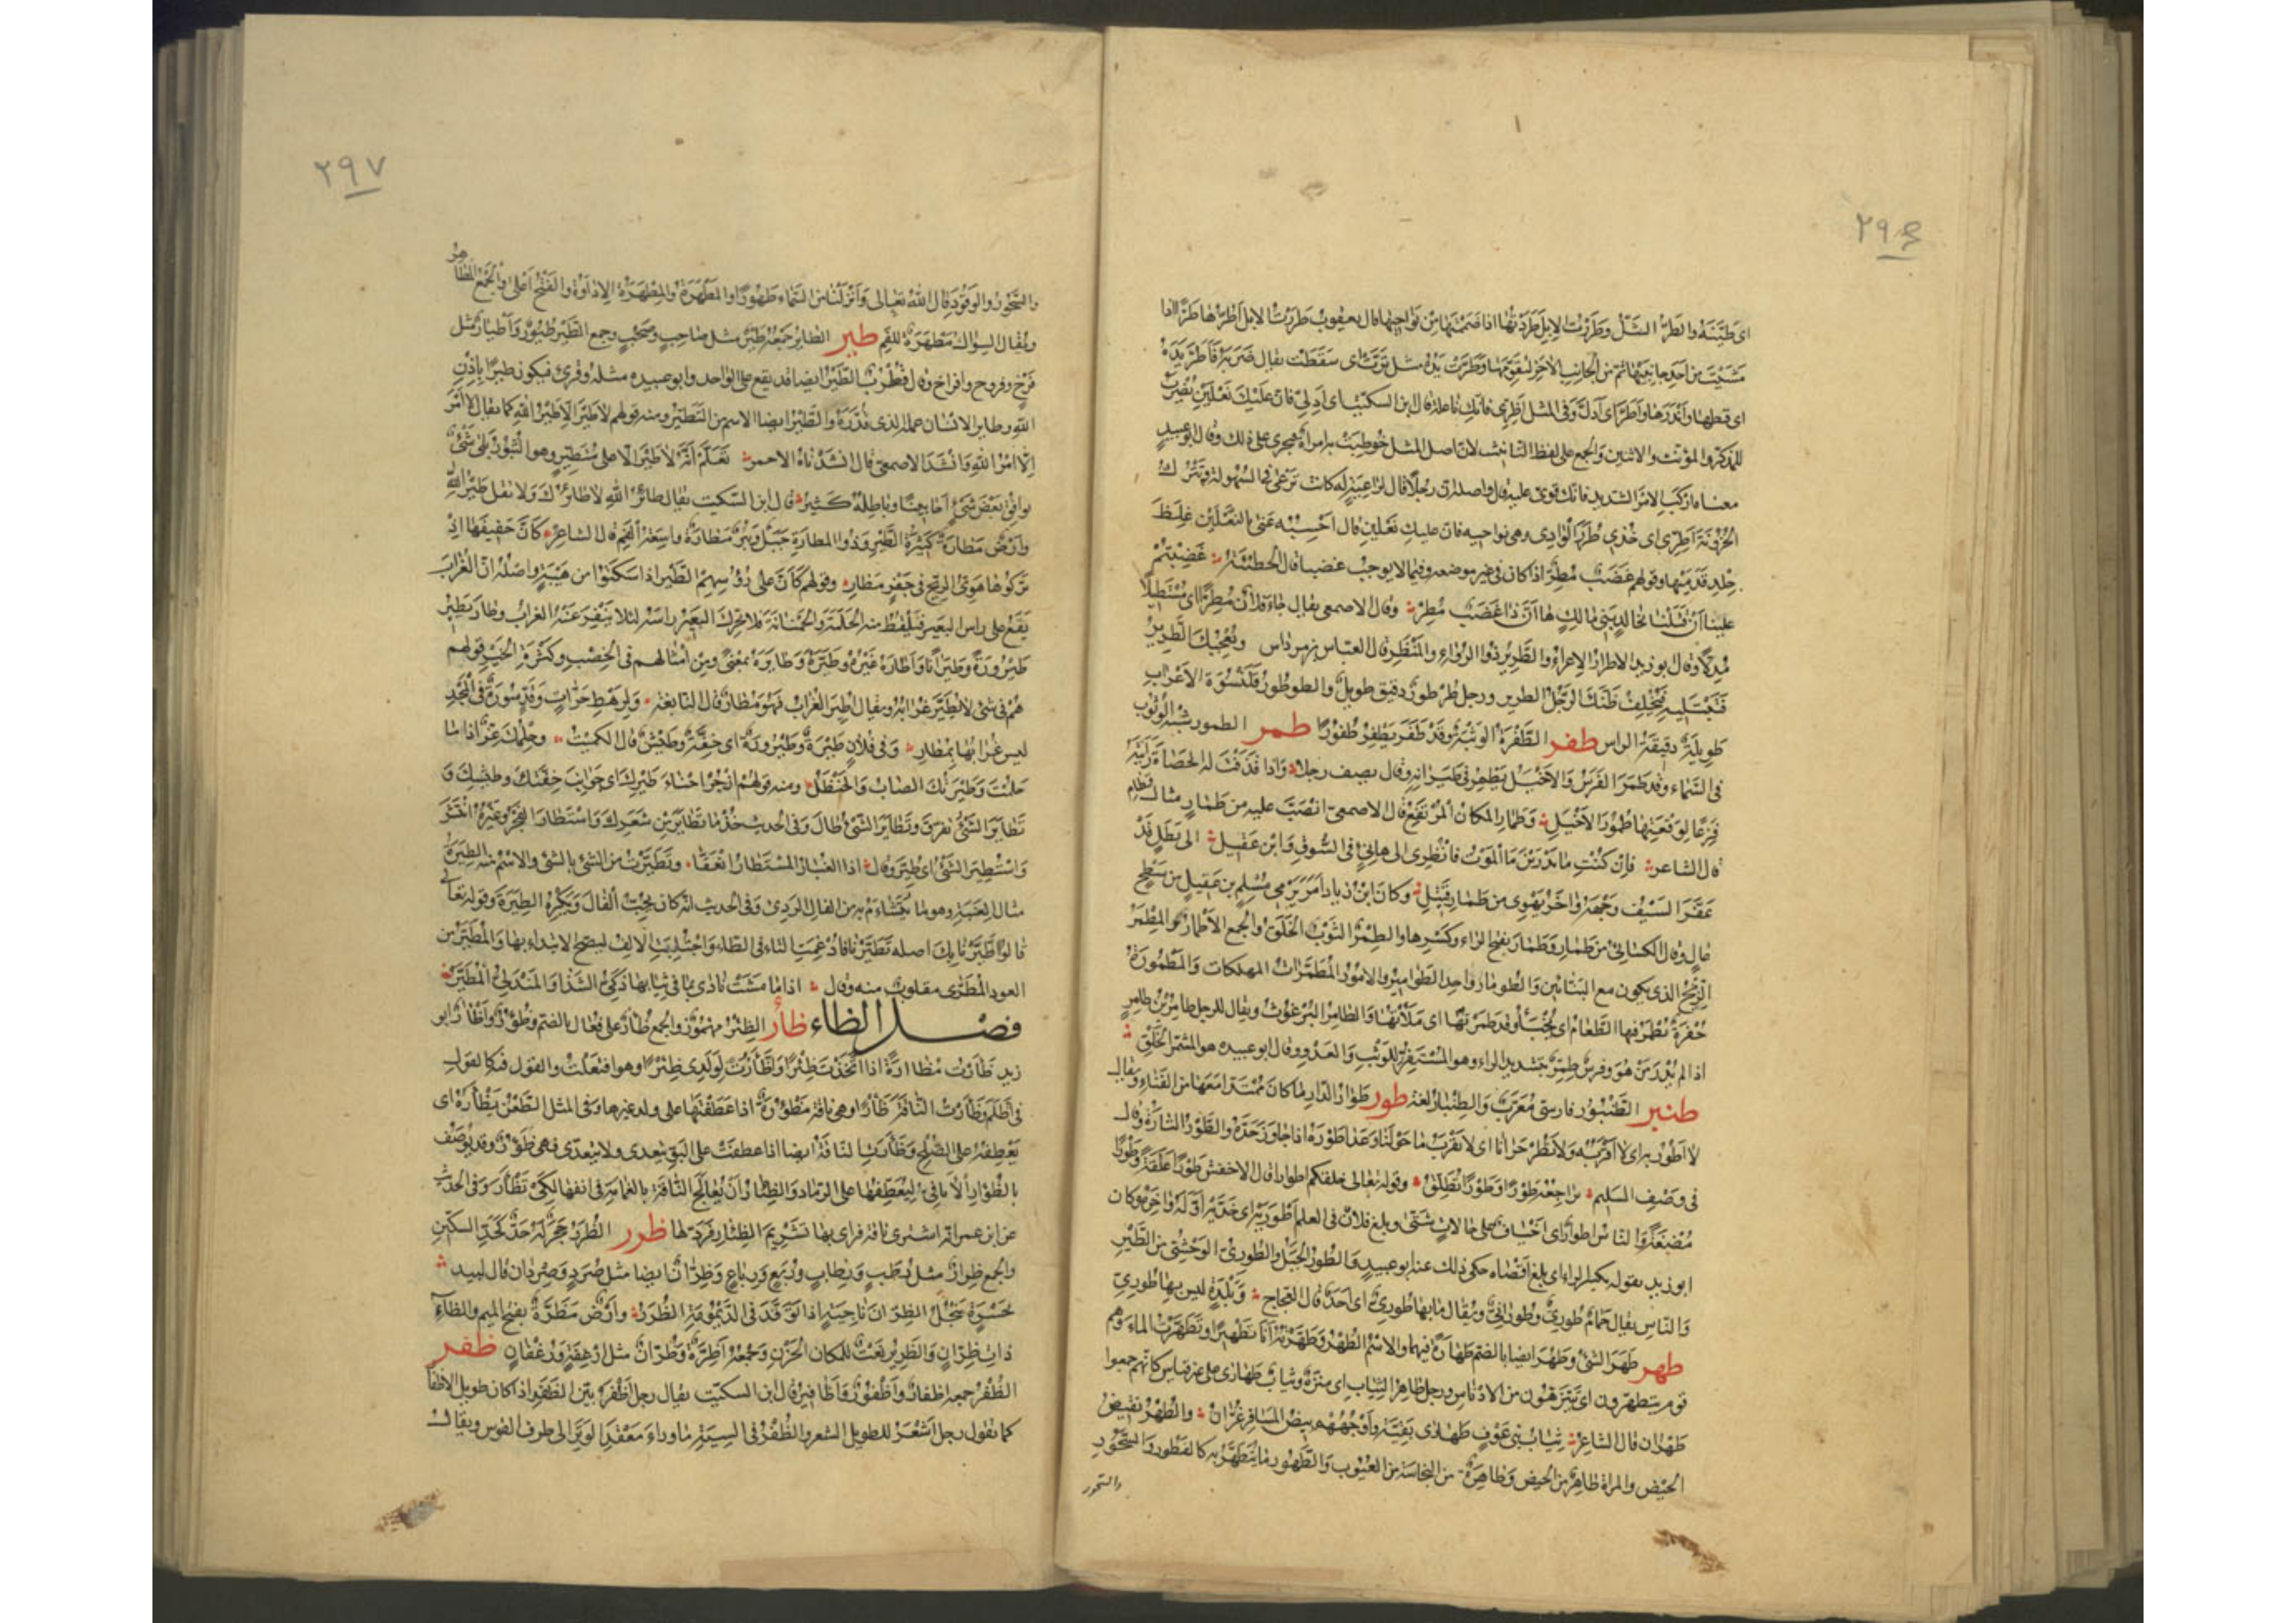 ٢٩٦
اى طيّنته والطرّ الشلّ وطررت الابل طردتها اذا ضممتها من نواحيها قال يعقوب طررت الابل اطرّها طرّا اذا
مشيت من احد جانبيها ثم من الجانب الآخر لتقوّمها وطرّت يده مثل ترّت اى سقطت يقال ضربه فأطرّ يده
اى قطعها وأندرها واطرّ اى أدلّ وفى المثل اطرّى فانك ناعلة قال ابن السكيت اى ادلّى فانّ عليك نعلين يضرب
للمذكر والمؤنث والاثنين والجمع على لفظ التانيث لان اصل المثل خوطبت به امرأة فيجرى على ذلك وقال ابو عبيد
معناه اركب الامر الشديد فانك قوىّ عليه قال واصله ان رجلا قال لراعية له كانت ترعى فى السهولة وتترك
الحزونة أطرّى اى خذى طرر الوادى وهى نواحيه فان عليك نعلين قال احسبه عنى بالنعلين غلظ
جلد قدميها وقولهم غضب مطرّ اذا كان فى غير موضعه وفيما لا يوجب غضبا قال الحطيئة غضبتم
علينا أن قتلنا بخالد بنى مالك ها انّ ذا غضب مطرّ وقال الاصمعى يقال جاء فلان مطرّا اى مستطيلا
مدلّا وقال ابو زيد الاطرار الاغراء والطرير ذو الرواء والمنظر قال العباس بن مرداس ويعجبك الطرير
فتبتليه فيخلف ظنك الرجل الطرير ورجل طرطور دقيق طويل والطرطور قلنسوة الاعراب
طويلة دقيقة الراس طفر الطفرة الوثبة وقد طفر يطفر طفورا طمر الطمور شبه الوثوب
فى السماء وقد طمر الفرس والاخيل يطمر فى طيرانه وقال يصف رجلا واذا قذفت له الحصاة رأيته
فزعا لوقعتها طمور الاخيل وطمار المكان المرتفع قال الاصمعى انصبّ عليه من طمار مثال قطام
قال الشاعر فان كنت ما تدرين ما الموت فانظرى الى هانئ فى السوق وابن عقيل الى بطل قد
عقّر السيف وجهه وآخر يهوى من طمار قتيل وكان ابن زياد امر برمى مسلم بن عقيل من سطح
عال وقال الكسائى من طمار وطمار بفتح الراء وكسرها والطمر الثوب الخلق والجمع الاطمار والمطمر
الزيج الذى يكون مع البنائين والطومار واحد الطوامير والامور المطمّرات المهلكات والمطمورة
حفرة يطمر فيها الطعام اى يخبأ وقد طمرتها اى ملأتها والطامر البرغوث ويقال للرجل طامر بن طامر
اذا لم يدر من هو وفرس طمرّ بتشديد الراء وهو المستفزّ للوثب والعدو وقال ابو عبيده هو المشمّر الخلق
طنبر الطنبور فارسى معرّب والطنبار لغة طور طوار الدار ما كان ممتدا معها من الفناء ويقال
لا اطور به اى لا اقربه ولا تطر حرانا اى لا تقرب ما حولنا وعدا طوره اذا جاوز حدّه والطور التارة وقال
فى وصف السليم تراجعه طورا وطورا تطلّق وقوله تعالى خلقكم اطوارا قال الاخفش طورا علقة وطورا
مضغة والناس اطوار اى اخياف على حالات شتى وبلغ فلان فى العلم اطوريه اى حدّيه اوله وآخره وكان
ابو زيد يقوله بكسر الراء اى بلغ اقصاه حكى ذلك عنه ابو عبيد والطور الجبل والطورى الوحشى من الطير
والناس يقال حمام طورى وطورانى ويقال ما بها طورى اى احد قال العجاج وبلدة ليس بها طورى
طهر طهر الشئ وطهر ايضا بالضم طهارة فيهما والاسم الطهر وطهّرته انا تطهيرا وتطهرت بالماء وهم
قوم يتطهرون اى يتنزهون من الادناس ورجل طاهر الثياب اى منزّه وثياب طهارى على غير قياس كانهم جمعوا
طهران قال الشاعر ثياب بنى عوف طهارى نقية واوجههم بيض المسافر غرّان والطهر نقيض
الحيض والمراة طاهر من الحيض وطاهرة من النجاسة ومن العيوب والطهور ما يتطهر به كالفطور والسحور
والسحور
٢٩٧
والسحور والوقود قال الله تعالى وانزلنا من السماء طهورا والمطهرة والمطهرة الاداوة والفتح اعلى والجمع المطاهر
ويقال السواك مطهرة للفم طير الطاير جمعه طير مثل صاحب وصحب وجمع الطير طيور واطيار مثل
فرخ وفروخ وافراخ وقال قطرب الطير ايضا قد يقع على الواحد وابو عبيده مثله وقرئ فيكون طيرا باذن
الله وطاير الانسان عمله الذى قلّده والطير ايضا الاسم من التطيّر ومنه قولهم لا طير الا طير الله كما يقال لا امر
الا امر الله وانشد الاصمعى قال انشدناه الاحمر تعلّم انه لا طير الا على متطيّر وهو الثبور بلى شئ
يوافق بعض شئ احايينا وباطله كثير قال ابن السكيت يقال طائر الله لا طائرك ولا تقل طير الله
وارض مطارة كثيرة الطير وذو المطارة جبل وبئر مطارة واسعة الفم قال الشاعر كانّ حفيفها اذ
برّكوها هوىّ الريح فى جفر مطار وقولهم كأنّ على رؤسهم الطير اذا سكنوا من هيبة واصله ان الغراب
يقع على راس البعير فيلقط منه الحلمة والحمنانة فلا يحرك البعير راسه لئلا ينفر عنه الغراب وطار يطير
طيرورة وطيرانا واطاره غيره وطيّره وطايره بمعنى ومن امثالهم فى الخصب وكثرة الخير قولهم
هم فى شئ لا يطير غرابه ويقال اطير الغراب فهو مطار قال النابغة ولرهط حرّاب وقدّ سورة فى المجد
ليس غرابها بمطار وفى فلان طيرة وطيرورة اى خفة وطيش قال الكميت وحلمك عزّ اذا ما
حلمت وطيرتك الصاب والحنظل ومنه قولهم ازجر احناء طيرك اى جوانب خفتك وطيشك و
تطاير الشئ تفرق وتطاير الشئ طال وفى الحديث خذ ما تطاير من شعرك واستطار الفجر وغيره انتشر
واستطير الشئ اى طيّر وقال اذا الغبار المستطار انعقّا وتطيّرت من الشئ وبالشئ والاسم منه الطيرة
مثال العنبة وهو ما يتشاءم به من الفال الردئ وفى الحديث انه كان يحبّ الفال ويكره الطيرة وقوله تعالى
قالوا اطّيّرنا بك اصله تطيّرنا فادغمت التاء فى الطاء واجتلبت الالف ليصح الابتداء بها والمطيّر من
العود المطرّى مقلوب منه وقال اذا ما مشت نادى بما فى ثيابها ذكىّ الشذا والمندلىّ المطيّر
فصل الظاء ظأر الظئر مهموز والجمع ظؤار على فعال بالضم وظؤور واظآر ابو
زيد ظاءرت مظاءرة اذا اتخذت ظئرا واظّأرت لولدى ظئرا وهو افتعلت والقول فيه كالقول
فى اظّلم وظأرت الناقة ظأرا وهى ناقة مظؤورة اذا عطفتها على ولد غيرها وفى المثل الطعن يظأره اى
يعطفه على الصلح وظأرت الناقة ايضا اذا عطفت على البوّ يتعدى ولا يتعدى فهى ظؤور وقد يوصف
بالظؤار الاثافى لتعطّفها على الرماد والظئار ان تعالج الناقة بالغمامة فى انفها لكى تظأر وفى الحديث
عن ابن عمر انه اشترى ناقة فراى بها تشريم الظئار فردّها ظرر الظرر حجر له حدّ كحدّ السكين
والجمع ظرار مثل رطب ورطاب وربع ورباع وظرّان ايضا مثل صرد وصردان قال لبيد
بجسرة تنجل الظرّان ناجية اذا توقّد فى الديمومة الظرر وارض مظرّة بفتح الميم والظاء
ذات ظرّان والظرير نعت للمكان الحزن وجمعه اظرّة وظرّان مثل ارغفة ورغفان ظفر
الظفر جمعه اظفار واظفور واظافير قال ابن السكيت يقال رجل اظفر بيّن الظفر اذا كان طويل الاظفار
كما تقول رجل اشعر للطويل الشعر والظفر فى السية ما وراء معقد الوتر الى طرف القوس ويقال